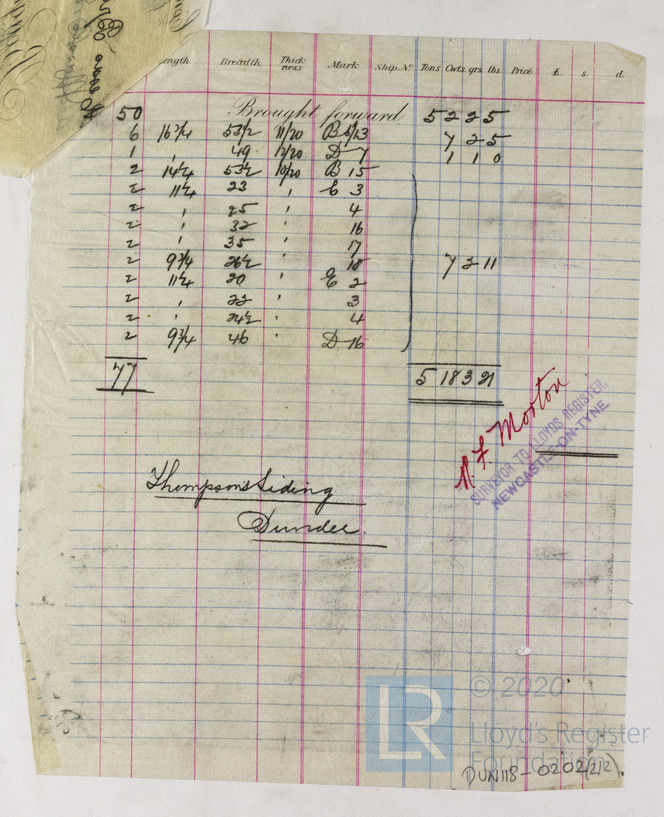 Length Breadth Thickness Mark Ship No Tons Cwts qrs lbs Price £ s. d.
50 Brought forward 5 2 2 5
6 16¾ 53½ 11/20 B 5/13 7 2 5
1 " 49 12/20 D 7 1 1 0
2 14¼ 53½ 10/20 B 15
2 11¼ 23 " E 3
2 " 25 " 4
2 " 32 " 16
2 " 35 " 17
2 9¾ 26½ " 18 7 2 11
2 11¼ 20 " E 2
2 " 22 " 3
2 " 24½ " 4
2 9¾ 46 " D 16
77 5 18 3 21
R. F. Morton
SURVEYOR TO LLOYDS REGISTER,
NEWCASTLE-ON-TYNE
Thompsons Siding
Dundee.
© 2020
LR
Lloyd's Register
Foundation
DUN118-0202(2/2)